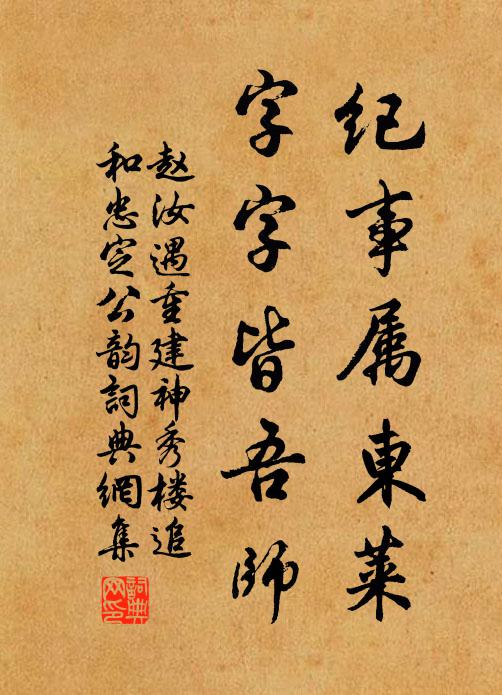 纪事属東莱
字字皆吾師
赵汝遇重建神秀楼追
和忠定公韵詞典網集
詞典网印